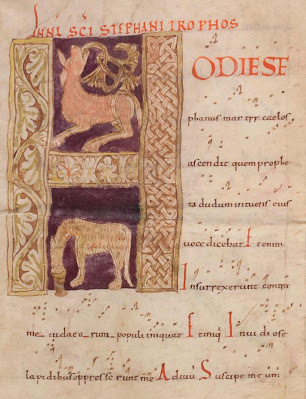 INNI SCI STEPHANI TROPHOS
HODIE SE
phanus martyr caelos
ascendit quem prophe
ta dudum intuens eius
uoce dicebat Etenim
Insurrexerunt contra
me iudaeo rum populi inique Etiniq Inuidiose
lapidibus oppresserunt me Adiuu Suscipe meum